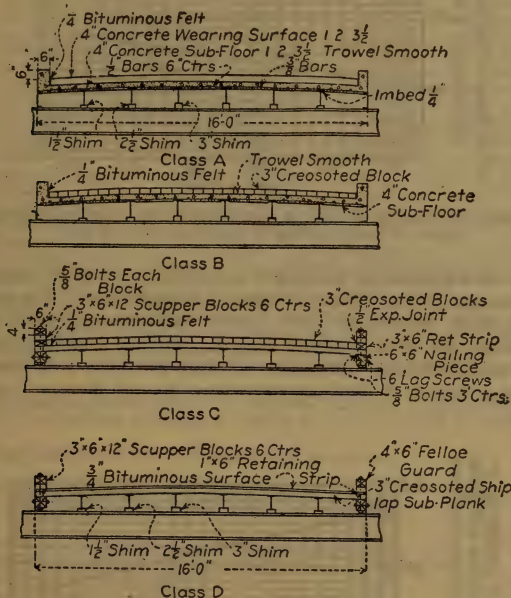 1/4" Bituminous Felt
6" 6" 4" Concrete Wearing Surface 1 2 3 1/2
4" Concrete Sub-Floor 1 2 3 1/2 Trowel Smooth
1/2" Bars 6" Ctrs 3/8" Bars
Imbed 1/4"
16'-0"
1 1/2" Shim 2 1/2" Shim 3" Shim
Class A
Trowel Smooth
1/4" Bituminous Felt 3" Creosoted Block
4" Concrete
Sub-Floor
Class B
5/8" Bolts Each
Block
6" 3"x6"x12" Scupper Blocks 6' Ctrs
4" 1/4" Bituminous Felt
3" Creosoted Blocks
1/2" Exp. Joint
3"x6" Ret Strip
6"x6" Nailing
Piece
6" Lag Screws
5/8" Bolts 3' Ctrs
Class C
3"x6"x12" Scupper Blocks 6' Ctrs
1"x6" Retaining
3/4" Bituminous Surface Strip
4"x6" Felloe
Guard
3" Creosoted Ship
lap Sub-Plank
1 1/2" Shim 2 1/2" Shim 3" Shim
16'-0"
Class D